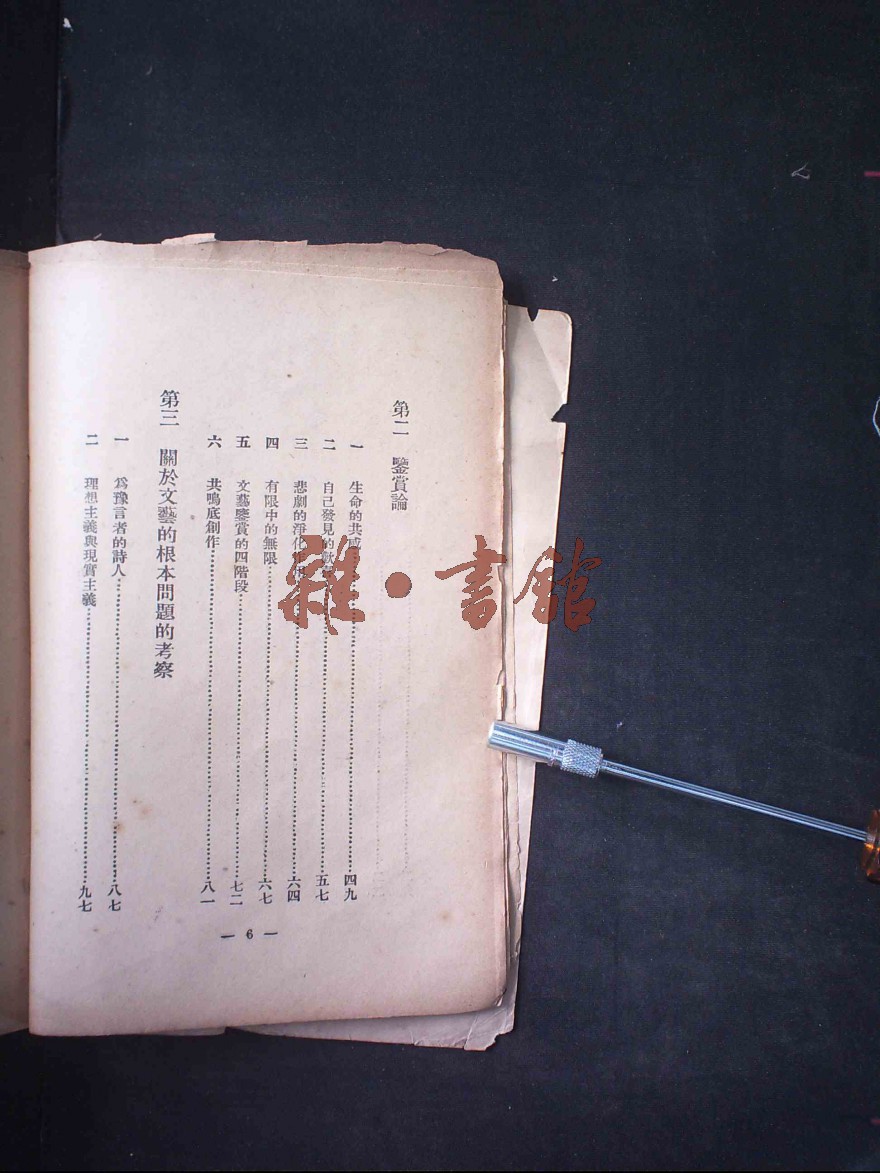 第二　鑒賞論
一　生命的共感……四九
二　自己發見的歡……五七
三　悲劇的淨化作用……六四
四　有限中的無限……六七
五　文藝鑒賞的四階段……七二
六　共鳴底創作……八一
第三　關於文藝的根本問題的考察
一　爲豫言者的詩人……八七
二　理想主義與現實主義……九七
— 6 —
雜·書館